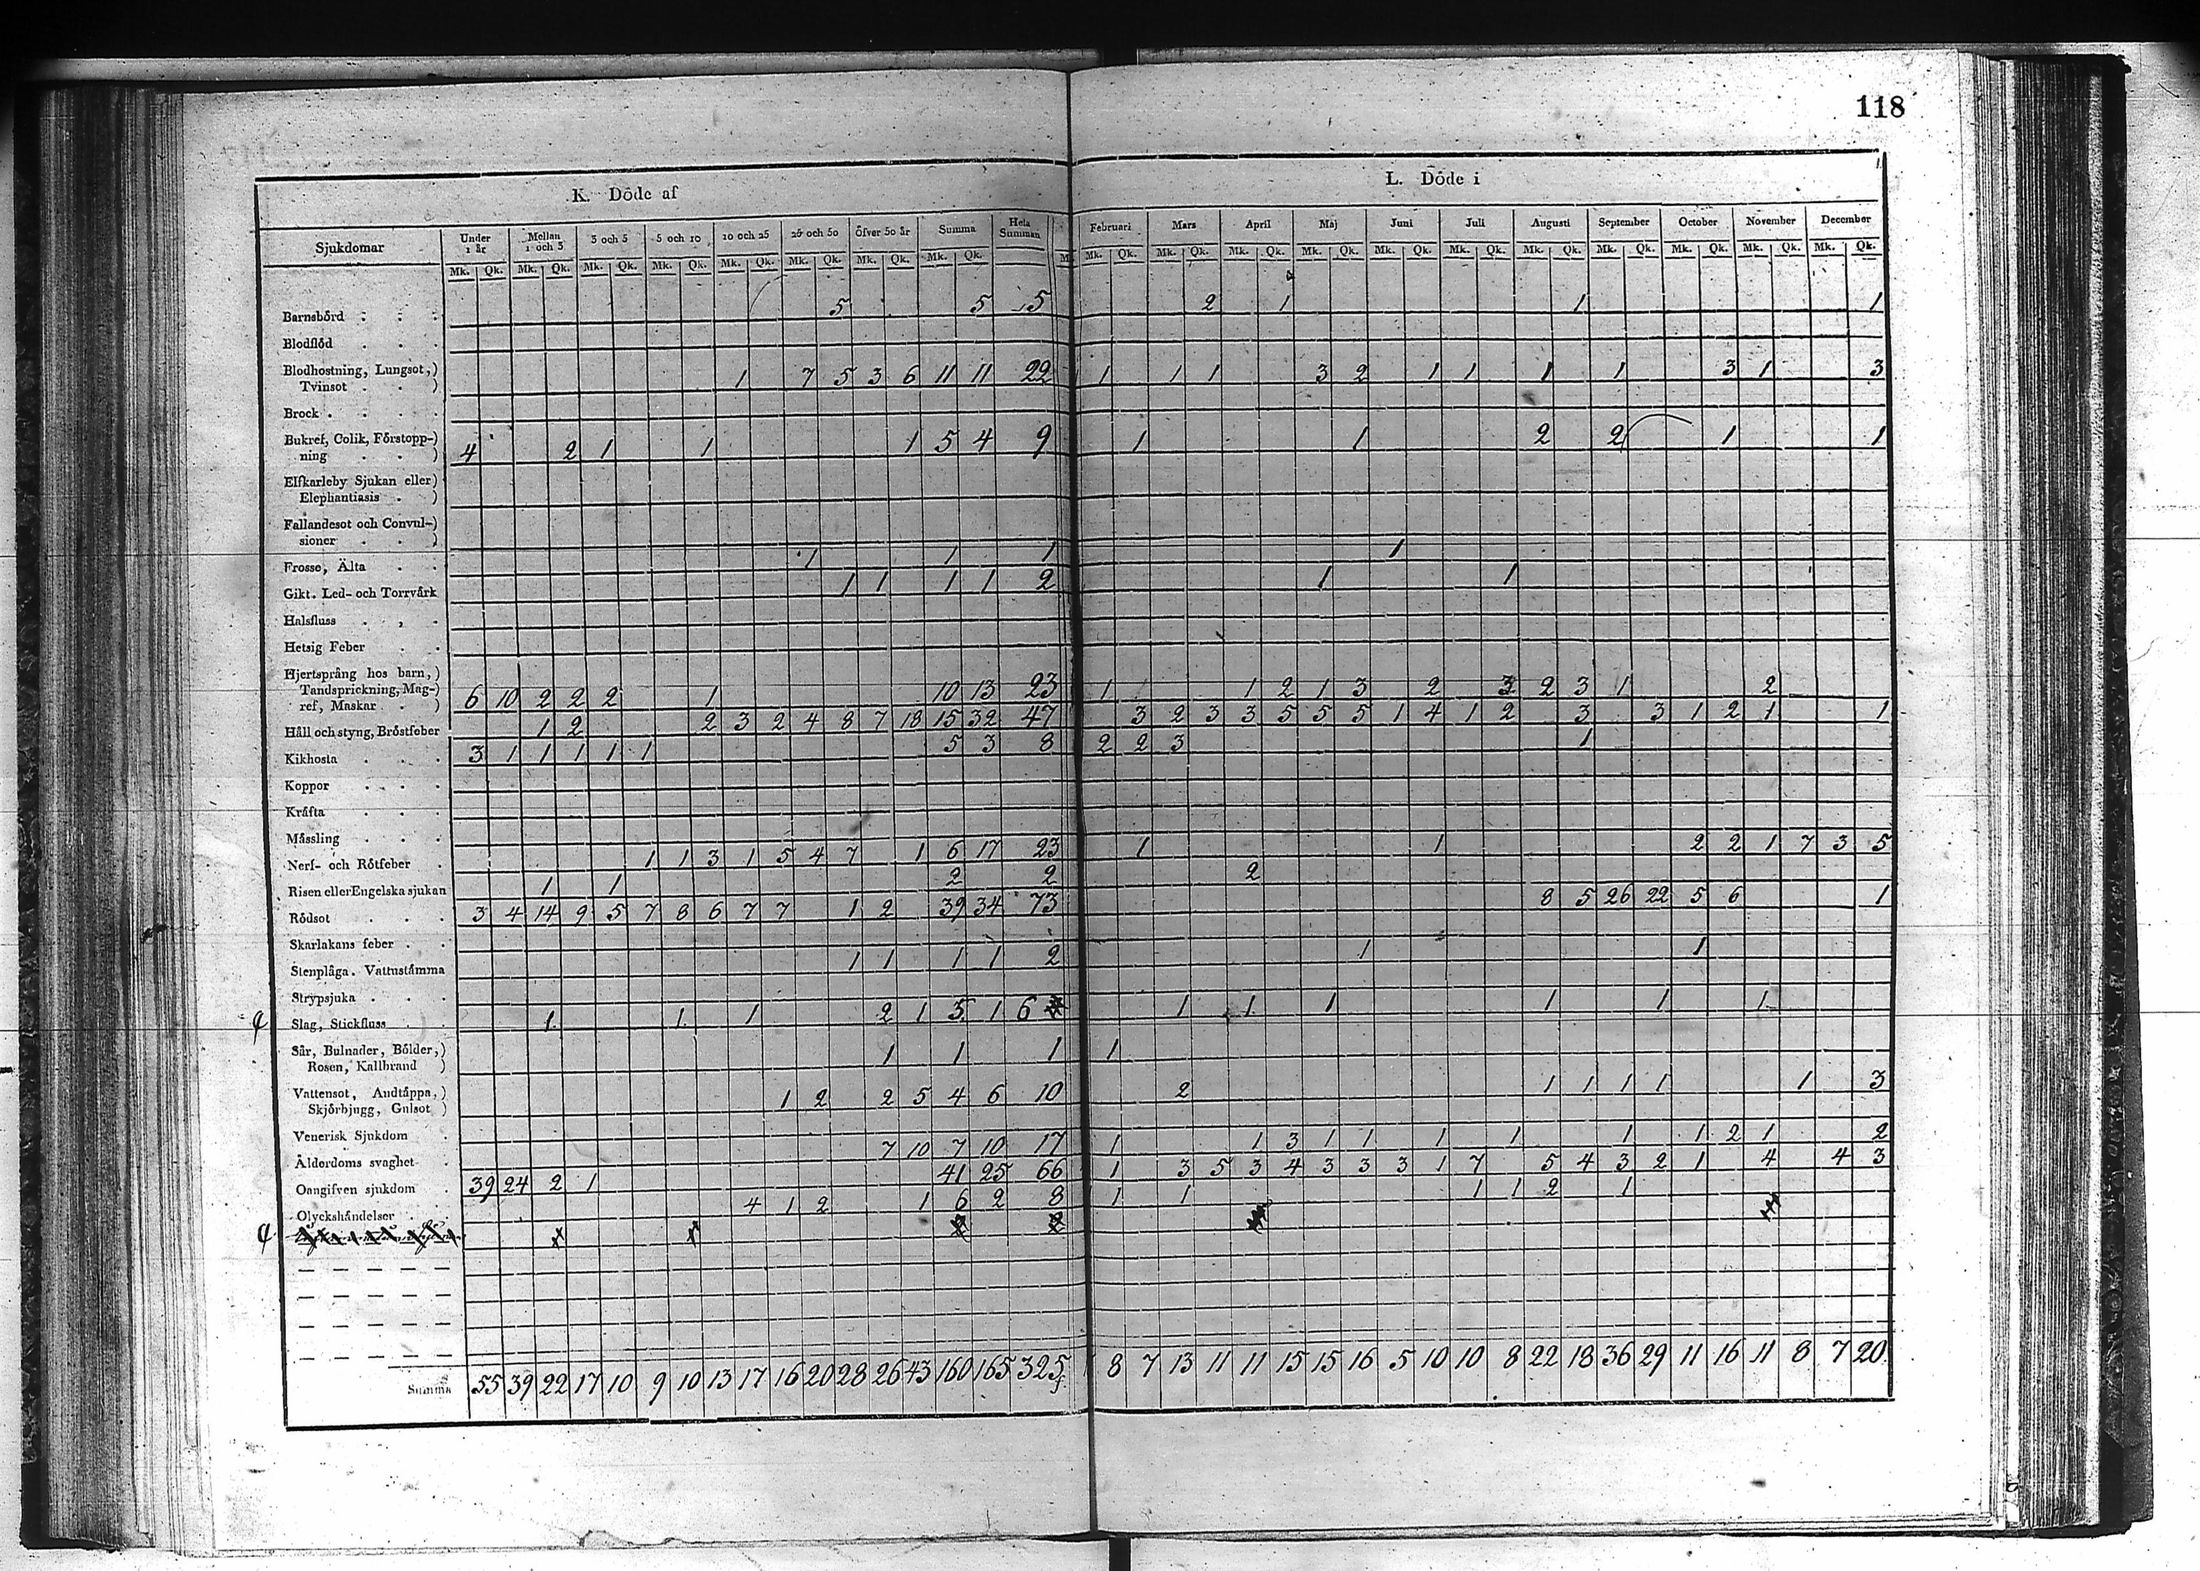 118
K. Döde af L. Döde i
Sjukdomar Under 1 år Mellan 1 och 3 3 och 5 5 och 10 10 och 25 25 och 50 öfver 50 år Summa Hela Summan Februari Mars April Maj Juni Juli Augusti September October November December
Mk. Qk. Mk. Qk. Mk. Qk. Mk. Qk. Mk. Qk. Mk. Qk. Mk. Qk. Mk. Qk. M Mk. Qk. Mk. Qk. Mk. Qk. Mk. Qk. Mk. Qk. Mk. Qk. Mk. Qk. Mk. Qk. Mk. Qk. Mk. Qk. Mk. Qk.
Barnsbörd . . . 5 5 5 2 1 1 1
Blodflöd . . .
Blodhostning, Lungsot,)
Tvinsot . . ) 1 7 5 3 6 11 11 22 1 1 1 3 2 1 1 1 1 3 1 3
Brock . . . .
Bukref, Colik, Förstopp-)
ning . . ) 4 2 1 1 1 5 4 9 1 1 2 2 1 1
Elfkarleby Sjukan eller)
Elephantiasis . )
Fallandesot och Convul-)
sioner . . )
Frosso, Älta . . 1 1 1 1
Gikt. Led- och Torrvärk 1 1 1 1 2 1 1
Halsfluss . , .
Hetsig Feber . .
Hjertsprång hos barn,)
Tandsprickning, Mag-)
ref, Maskar . ) 6 10 2 2 2 1 10 13 23 1 1 2 1 3 2 3 2 3 1 2
Håll och styng, Bröstfeber 1 2 2 3 2 4 8 7 18 15 32 47 3 2 3 3 5 5 5 1 4 1 2 3 3 1 2 1 1
Kikhosta . . . 3 1 1 1 1 1 5 3 8 2 2 3 1
Koppor . . . .
Kräfta . . .
Mässling . . .
Nerf- och Rötfeber . 1 1 3 1 5 4 7 1 6 17 23 1 1 2 2 1 7 3 5
Risen eller Engelska sjukan 1 1 2 2 2
Rödsot . . . 3 4 14 9 5 7 8 6 7 7 1 2 39 34 73 8 5 26 22 5 6 1
Skarlakans feber . .
Stenplåga. Vattustämma 1 1 1 1 2 1 1
Strypsjuka . . .
Slag, Stickfluss . . 1 1 1 2 1 5 1 6 1 1 1 1 1 1
Sår, Bulnader, Bölder,)
Rosen, Kallbrand ) 1 1 1 1
Vattensot, Andtäppa,)
Skjörbjugg, Gulsot ) 1 2 2 5 4 6 10 2 1 1 1 1 1 3
Venerisk Sjukdom .
Ålderdoms svaghet . 7 10 7 10 17 1 1 3 1 1 1 1 1 1 2 1 2
Oangifven sjukdom . 39 24 2 1 41 25 66 1 3 5 3 4 3 3 3 1 7 5 4 3 2 1 4 4 3
Olyckshändelser . . 4 1 2 1 6 2 8 1 1 1 1 2 1
Summa 55 39 22 17 10 9 10 13 17 16 20 28 26 43 160 165 325 8 7 13 11 11 15 15 16 5 10 10 8 22 18 36 29 11 16 11 8 7 20